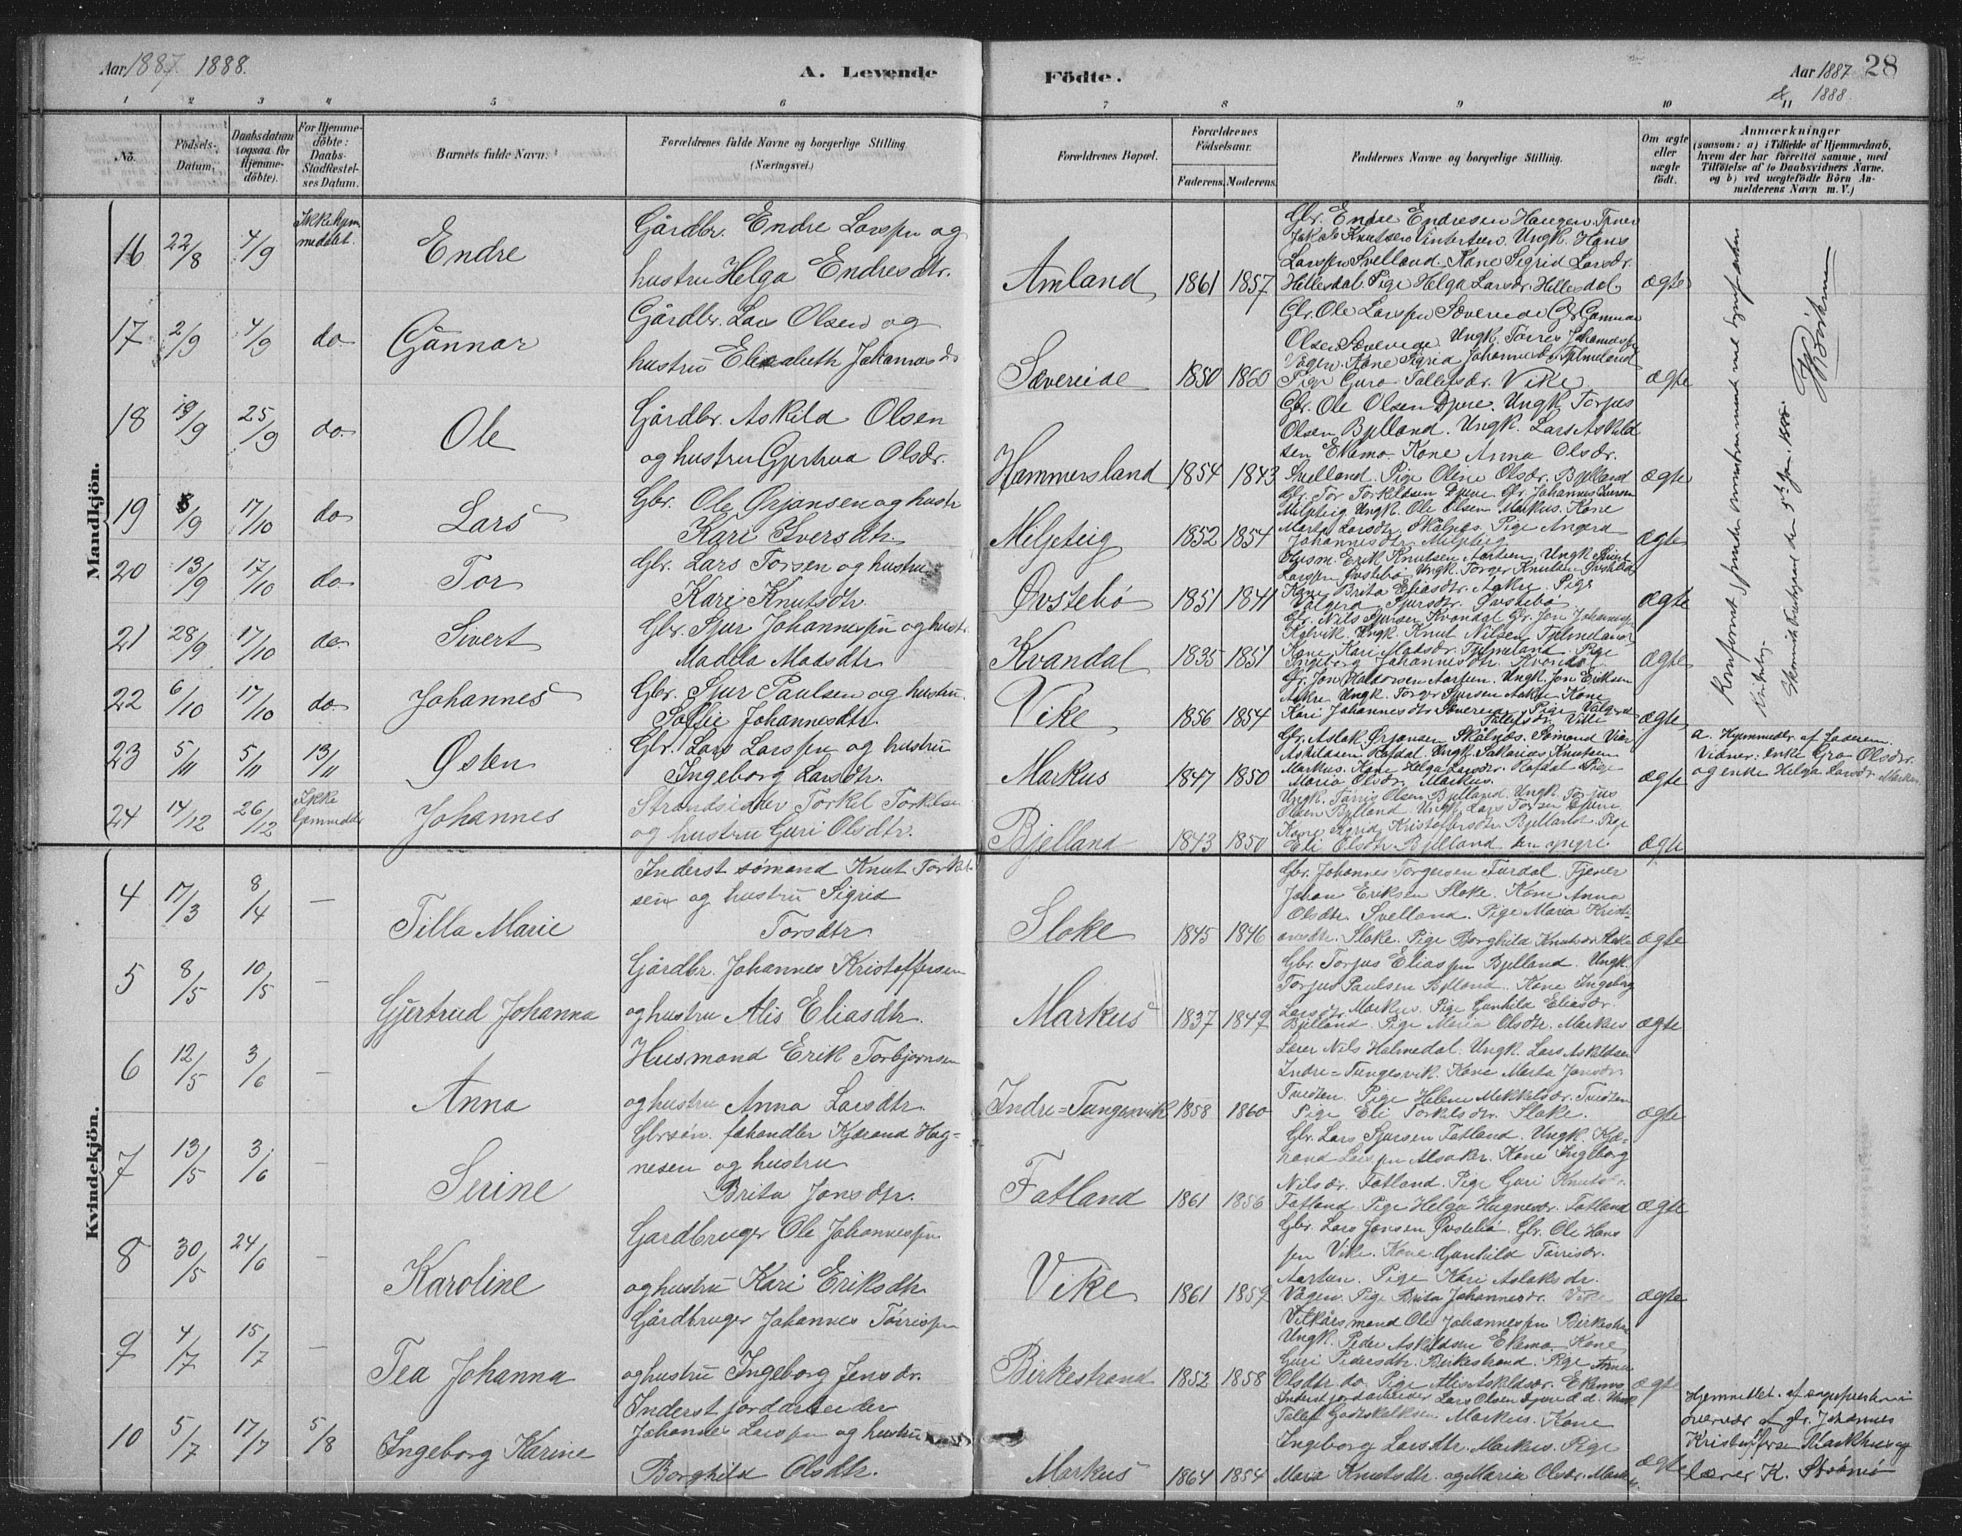 Aar 1887 1888.
A. Levende
Födte.
Aar 1887 28
& 1888.
1 2 3 4 5 6 7 8 9 10 11
No.
Födsels-Datum.
Daabsdatum (ogsaa for Hjemme-döbte).
For Hjemme-döbte: Daabs-Stadfæstel-ses Datum.
Barnets fulde Navn.
Forældrenes fulde Navne og borgerlige Stilling
(Næringsvei.)
Forældrenes Bopæl.
Forældrenes Födselsaar.
Faderens. Moderens.
Faddernes Navne og borgerlige Stilling.
Om ægte eller uægte födt.
Anmærkninger
(saasom: a) i Tilfælde af Hjemmedaab,
hvem der har forrettet samme, med
Tilföielse af to Daabsvidners Navne,
og b) ved uægtefödte Börn An-
melderens Navn m. V.)
Mandkjön.
16 22/8 4/9 Endre
Gårdbr. Endre Larssen og
hustru Helga Endresdtr.
Amland 1861 1857
Gbr. Endre Endresen Haugen
Jakob Knutsen Ungk. Hans
Larssen Svelland. Kone Sigrid Larsdr.
Hellesdal. Pige Helga Larsdr. Hellesdal
ægte
17 2/9 4/9 do Gunnar
Gårdbr. Lars Olsen og
hustru Elisabeth Johannesd
Sævereide 1850 1860
Gbr. Ole Larssen Sævereide Gunnar
Olsen Sævereide Ungk. Tørres Johannessen
Vågen. Kone Sigrid Johannesdr Fjelmeland
Pige Guro Tollefsdr. Vike
ægte
18 19/9 25/9 do. Ole
Gårdbr. Askild Olsen
og hustru Gjertrud Olsdr.
Hammersland 1854 1843
Gbr. Ole Olsen Djuve. Ungk Torjus
Olsen Bjelland. Ungk. Lars Askild
sen Ekemo. Kone Anna Olsdr.
Svelland. Pige Oline Olsdr. Bjelland
ægte
19 8/9 17/10 do Lars
Gbr. Ole Ørjansen og hustr
Kari Iversdtr
Miljeteig 1852 1854
Gbr. Tor Torkildsen Djuve Gbr. Johannes
Miljeteig Ungk Ole Olsen Markus. Kone
Marta Larsdtr Skålnes. Pige
Johannesdtr Miljeteig
ægte
20 13/9 17/10 do Tor
Gbr. Lars Torsen og hustru
Kari Knutsdtr.
Øvstebø 1851 1841
Husm. Erik Knutsen Aarten. Ungk
Larssen Øvstebø Ungk Torger Knutsen Øvstebø
Kone Brita Eliasdtr. Aakre. Pige
Valgerd Sjursdtr. Øvstebø
ægte
21 28/9 17/10 do Sivert
Gbr. Sjur Johannessen og hust.
Madela Madsdtr
Kvandal 1835 1851
Gbr. Nils Sjursen Kvandal Gbr. Jon Johannessen
Kalvik. Ungk Knut Nilsen Fjelmeland
Kone Kari Madsdr. Fjelmeland Pige
Ingeborg Johannesdtr. Kvandal
ægte
22 6/10 17/10 do Johannes
Gbr. Sjur Paulsen og hustru.
Solfie Johannesdtr.
Vike 1856 1854
Gbr. Jon Haldorsen Aarten. Ungk. Jon Eriksen
Aakre. Ungk. Torger Sjursen Aakre Kone
Kari Johannesdtr Sævereide Pige Valgerd
Tollefsdr. Vike
ægte
23 5/11 5/11 13/11 Østen
Gbr. Lars Larssen og hustru
Ingeborg Larsdtr.
Markus 1847 1850
Gbr. Aslak Ørjansen Skålnes. Sømand
Askildsen Rafdal Ungk Sakarias Knutsen
Markus. Kone Helga Larsdr. Rafdal Pige
Maria Olsdr. Markus.
ægte
a. Hjemmedbt. af faderen.
Vidner: enke Gro Olsdr.
og enke Helga Larsdr. Markus
24 14/12 26/12 Ikke Johannes
Strandsidder Torkel Torkelsen
og hustru Guri Olsdtr.
Bjelland 1843 1850
Ungk. Tørris Olsen Bjelland. Ungk Torjus
Olsen Bjelland. Ungk Lars Torsen Djuve
Kone Sigrid Kristoffersdtr. Bjelland Pige
Eli Olsdtr Bjelland den yngre
ægte
Konfirmert
Kirkebog.
den 5te Jan. 1888.
Kvindekjön.
4 17/3 8/4 — Tilla Marie
Inderst sømand Knut Torkel
sen og hustru Sigrid
Torsdtr.
Sloke 1845 1846
Gbr. Johannes Torgersen Furdal Tjener
Johan Eriksen Sloke. Kone Anna
Olsdtr. Svelland. Pige Maria Kristi-
ansdtr. Sloke. Pige Borghild Knutsdr Sloke
ægte
5 8/5 10/5 — Gjertrud Johanna
Gårdbr. Johannes Kristoffersen
og hustru Alis Eliasdtr.
Markus 1837 1849
Gbr. Torjus Eliassen Bjelland. Ungk.
Torjus Paulsen Bjelland. Kone Ingeborg
Larsdr Markus. Pige Gunhild Eliasdr.
Bjelland. Pige Maria Olsdtr. Markus
ægte
6 12/5 3/6 — Anna
Husmand Erik Torbjørnsen
og hustru Anna Larsdtr.
Indre=Tungesvik 1858 1860
Lærer Nils Halmedal. Ungk. Lars Askildsen
Indre=Tungesvik. Kone Marta Jonsdr.
Tveiten. Pige Helene Mikkelsdr. Tveiten
Pige Eli Torkelsdr. Sloke.
ægte
7 13/5 3/6 — Serine
Gbrsøn. fæhandler Kjærand Hag=
nesen og hustru
Brita Jonsdtr.
Fatland 1861 1856
Gbr. Lars Sjursen Fatland. Ungk. Kjæ-
rand Larssen Alsaker. Kone Ingeborg
Nilsdr. Fatland. Pige Guri Knutsdr.
Fatland. Pige Helga Hagnesdr. Fatland
ægte
8 30/5 24/6 — Karoline
Gardbruger Ole Johannessen
og hustru Kari Eriksdtr
Vike 1861 1859
Gbr. Lars Jonsen Øvstebø. Gbr. Ole Hans
sen Vike. Kone Gunhild Tørrisdr.
Aarten. Pige Kari Aslaksdr.
Vågen. Pige Brita Johannesdr. Vike
ægte
9 4/7 15/7 — Tea Johanna
Gårdbruger Johannes Tørrissen
og hustru Ingeborg Jensdr.
Birkestrand 1852 1858
Vilkårsmand Ole Johannessen Birkestr.
Ungk. Peder Askildsen Ekemo Kone
Guri Pedersdtr. Birkestrand. Pige Anna
Olsdtr do. Pige Alis Askildsdr. Ekemo
ægte
10 5/7 17/7 5/8 Ingeborg Karine
Inderst jordarbeider
Johannes Larssen og hustru
Borghild Olsdtr.
Markus 1864 1854
Inderst jordarbeider Lars Olsen
Tollef Godskalksen Markus. Kone
Ingeborg Larsdtr. Markus. Pige
Maria Knutsdtr. og Maria Olsdr. Markus
ægte
Hjemmedbt. af
nærvær af gbr. Johannes
Kristoffersen Markhus og
lærer K.